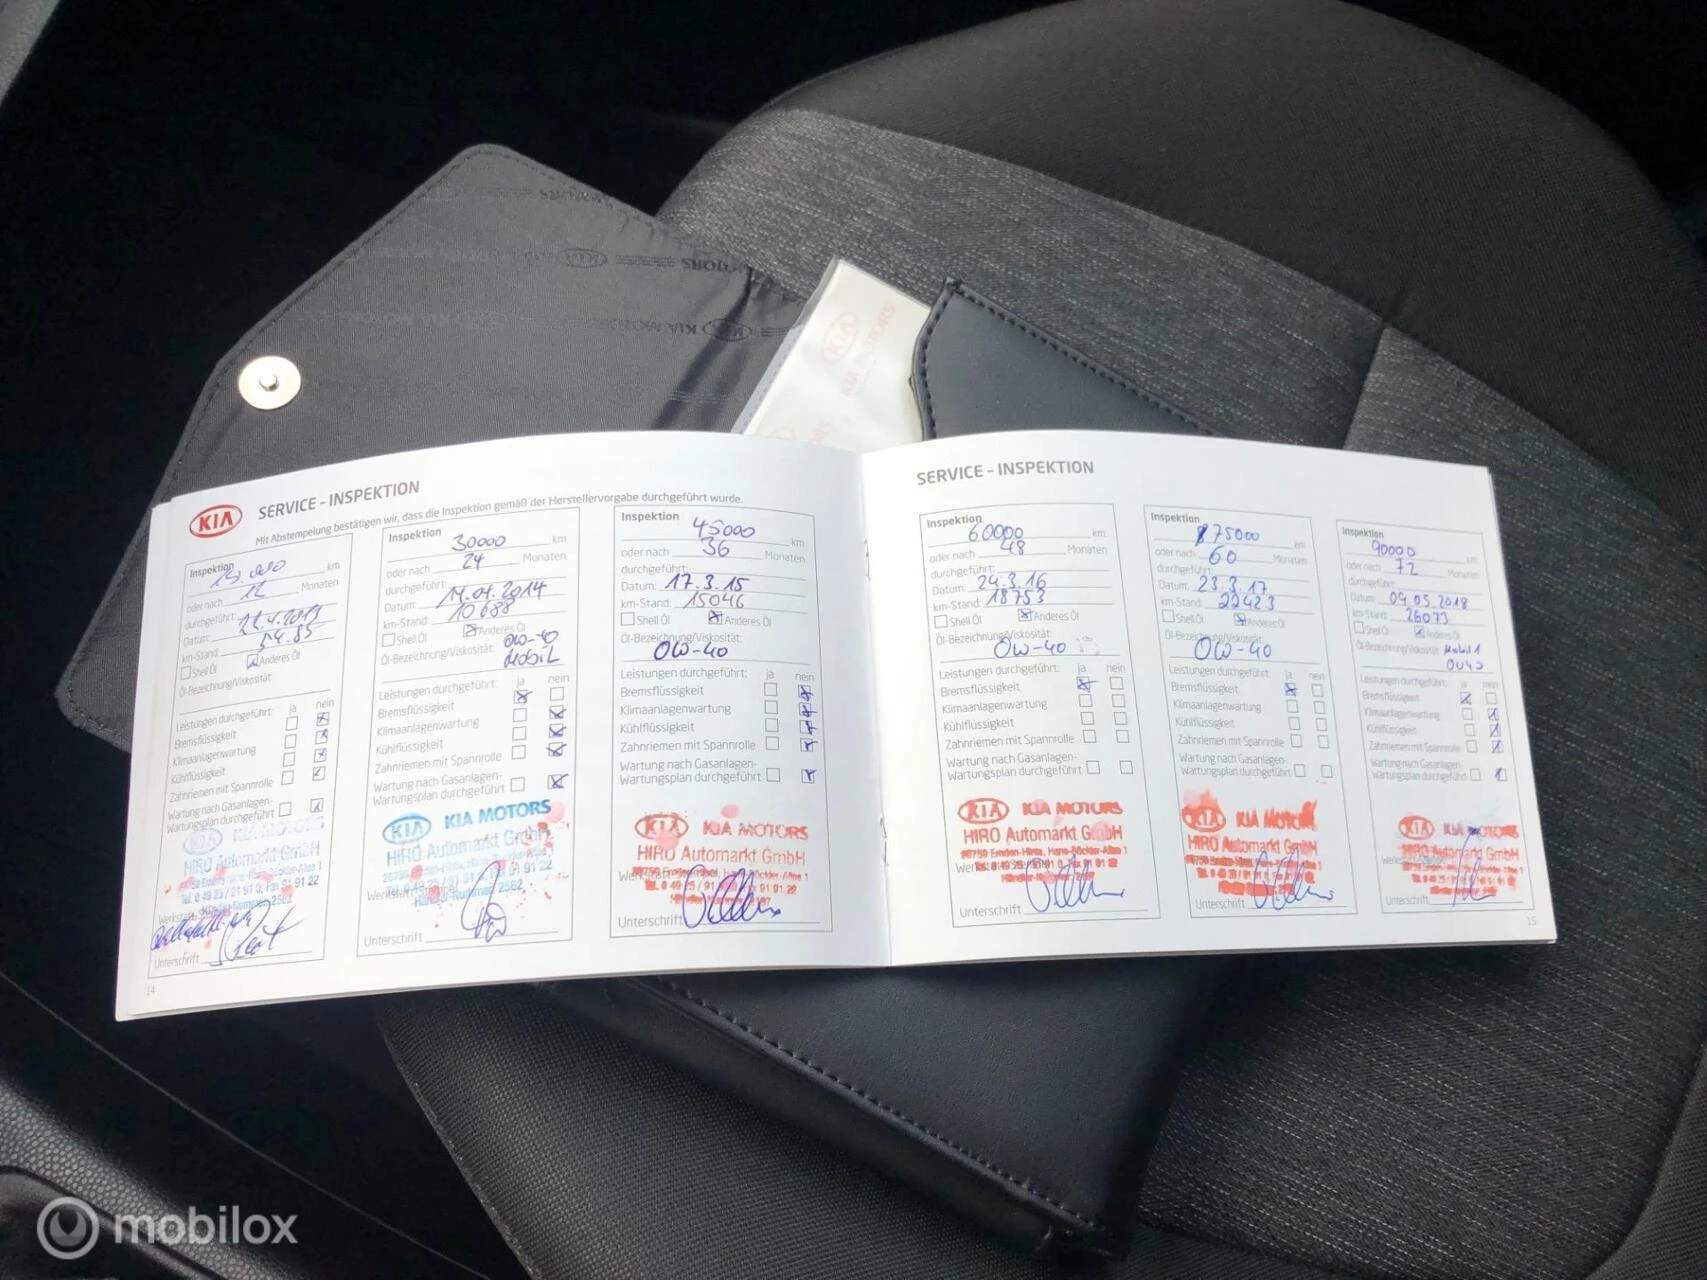 KIA MOTORS
KIA
KIA MOTORS
KIA
KIA MOTORS
KIA
SERVICE – INSPEKTION
Mit Abstempelung bestätigen wir, dass die Inspektion gemäß der Herstellervorgabe durchgeführt wurde.
Inspektion
km
oder nach 12 Monaten
durchgeführt:
Datum:
km-Stand: 5485
Shell Öl Anderes Öl
Öl-Bezeichnung/Viskosität:
Leistungen durchgeführt: ja nein
Bremsflüssigkeit
Klimaanlagenwartung
Kühlflüssigkeit
Zahnriemen mit Spannrolle
Wartung nach Gasanlagen-
Wartungsplan durchgeführt
KIA KIA MOTORS
HIRO Automarkt GmbH
Unterschrift
Inspektion 30000 km
oder nach 24 Monaten
durchgeführt:
Datum: 14.04.2014
km-Stand: 10688
Shell Öl Anderes Öl
Öl-Bezeichnung/Viskosität: 0W-40
Mobil
Leistungen durchgeführt: ja nein
Bremsflüssigkeit
Klimaanlagenwartung
Kühlflüssigkeit
Zahnriemen mit Spannrolle
Wartung nach Gasanlagen-
Wartungsplan durchgeführt
KIA KIA MOTORS
HIRO Automarkt GmbH
Unterschrift
Inspektion 45000 km
oder nach 36 Monaten
durchgeführt:
Datum: 17.3.15
km-Stand: 15046
Shell Öl Anderes Öl
Öl-Bezeichnung/Viskosität:
0W-40
Leistungen durchgeführt: ja nein
Bremsflüssigkeit
Klimaanlagenwartung
Kühlflüssigkeit
Zahnriemen mit Spannrolle
Wartung nach Gasanlagen-
Wartungsplan durchgeführt
KIA KIA MOTORS
HIRO Automarkt GmbH
Unterschrift
14
SERVICE – INSPEKTION
Inspektion 60000 km
oder nach 48 Monaten
durchgeführt:
Datum: 24.3.16
km-Stand: 18753
Shell Öl Anderes Öl
Öl-Bezeichnung/Viskosität:
0W-40
Leistungen durchgeführt: ja nein
Bremsflüssigkeit
Klimaanlagenwartung
Kühlflüssigkeit
Zahnriemen mit Spannrolle
Wartung nach Gasanlagen-
Wartungsplan durchgeführt
KIA KIA MOTORS
HIRO Automarkt GmbH
Unterschrift
Inspektion 75000 km
oder nach 60 Monaten
durchgeführt:
Datum: 23.3.17
km-Stand: 22423
Shell Öl Anderes Öl
Öl-Bezeichnung/Viskosität:
0W-40
Leistungen durchgeführt: ja nein
Bremsflüssigkeit
Klimaanlagenwartung
Kühlflüssigkeit
Zahnriemen mit Spannrolle
Wartung nach Gasanlagen-
Wartungsplan durchgeführt
KIA KIA MOTORS
HIRO Automarkt GmbH
Unterschrift
Inspektion 90000 km
oder nach 72 Monaten
durchgeführt:
Datum: 09.05.2018
km-Stand: 26073
Shell Öl Anderes Öl
Öl-Bezeichnung/Viskosität: Mobil 1
0W40
Leistungen durchgeführt: ja nein
Bremsflüssigkeit
Klimaanlagenwartung
Kühlflüssigkeit
Zahnriemen mit Spannrolle
Wartung nach Gasanlagen-
Wartungsplan durchgeführt
KIA KIA MOTORS
HIRO Automarkt GmbH
Unterschrift
15
mobilox